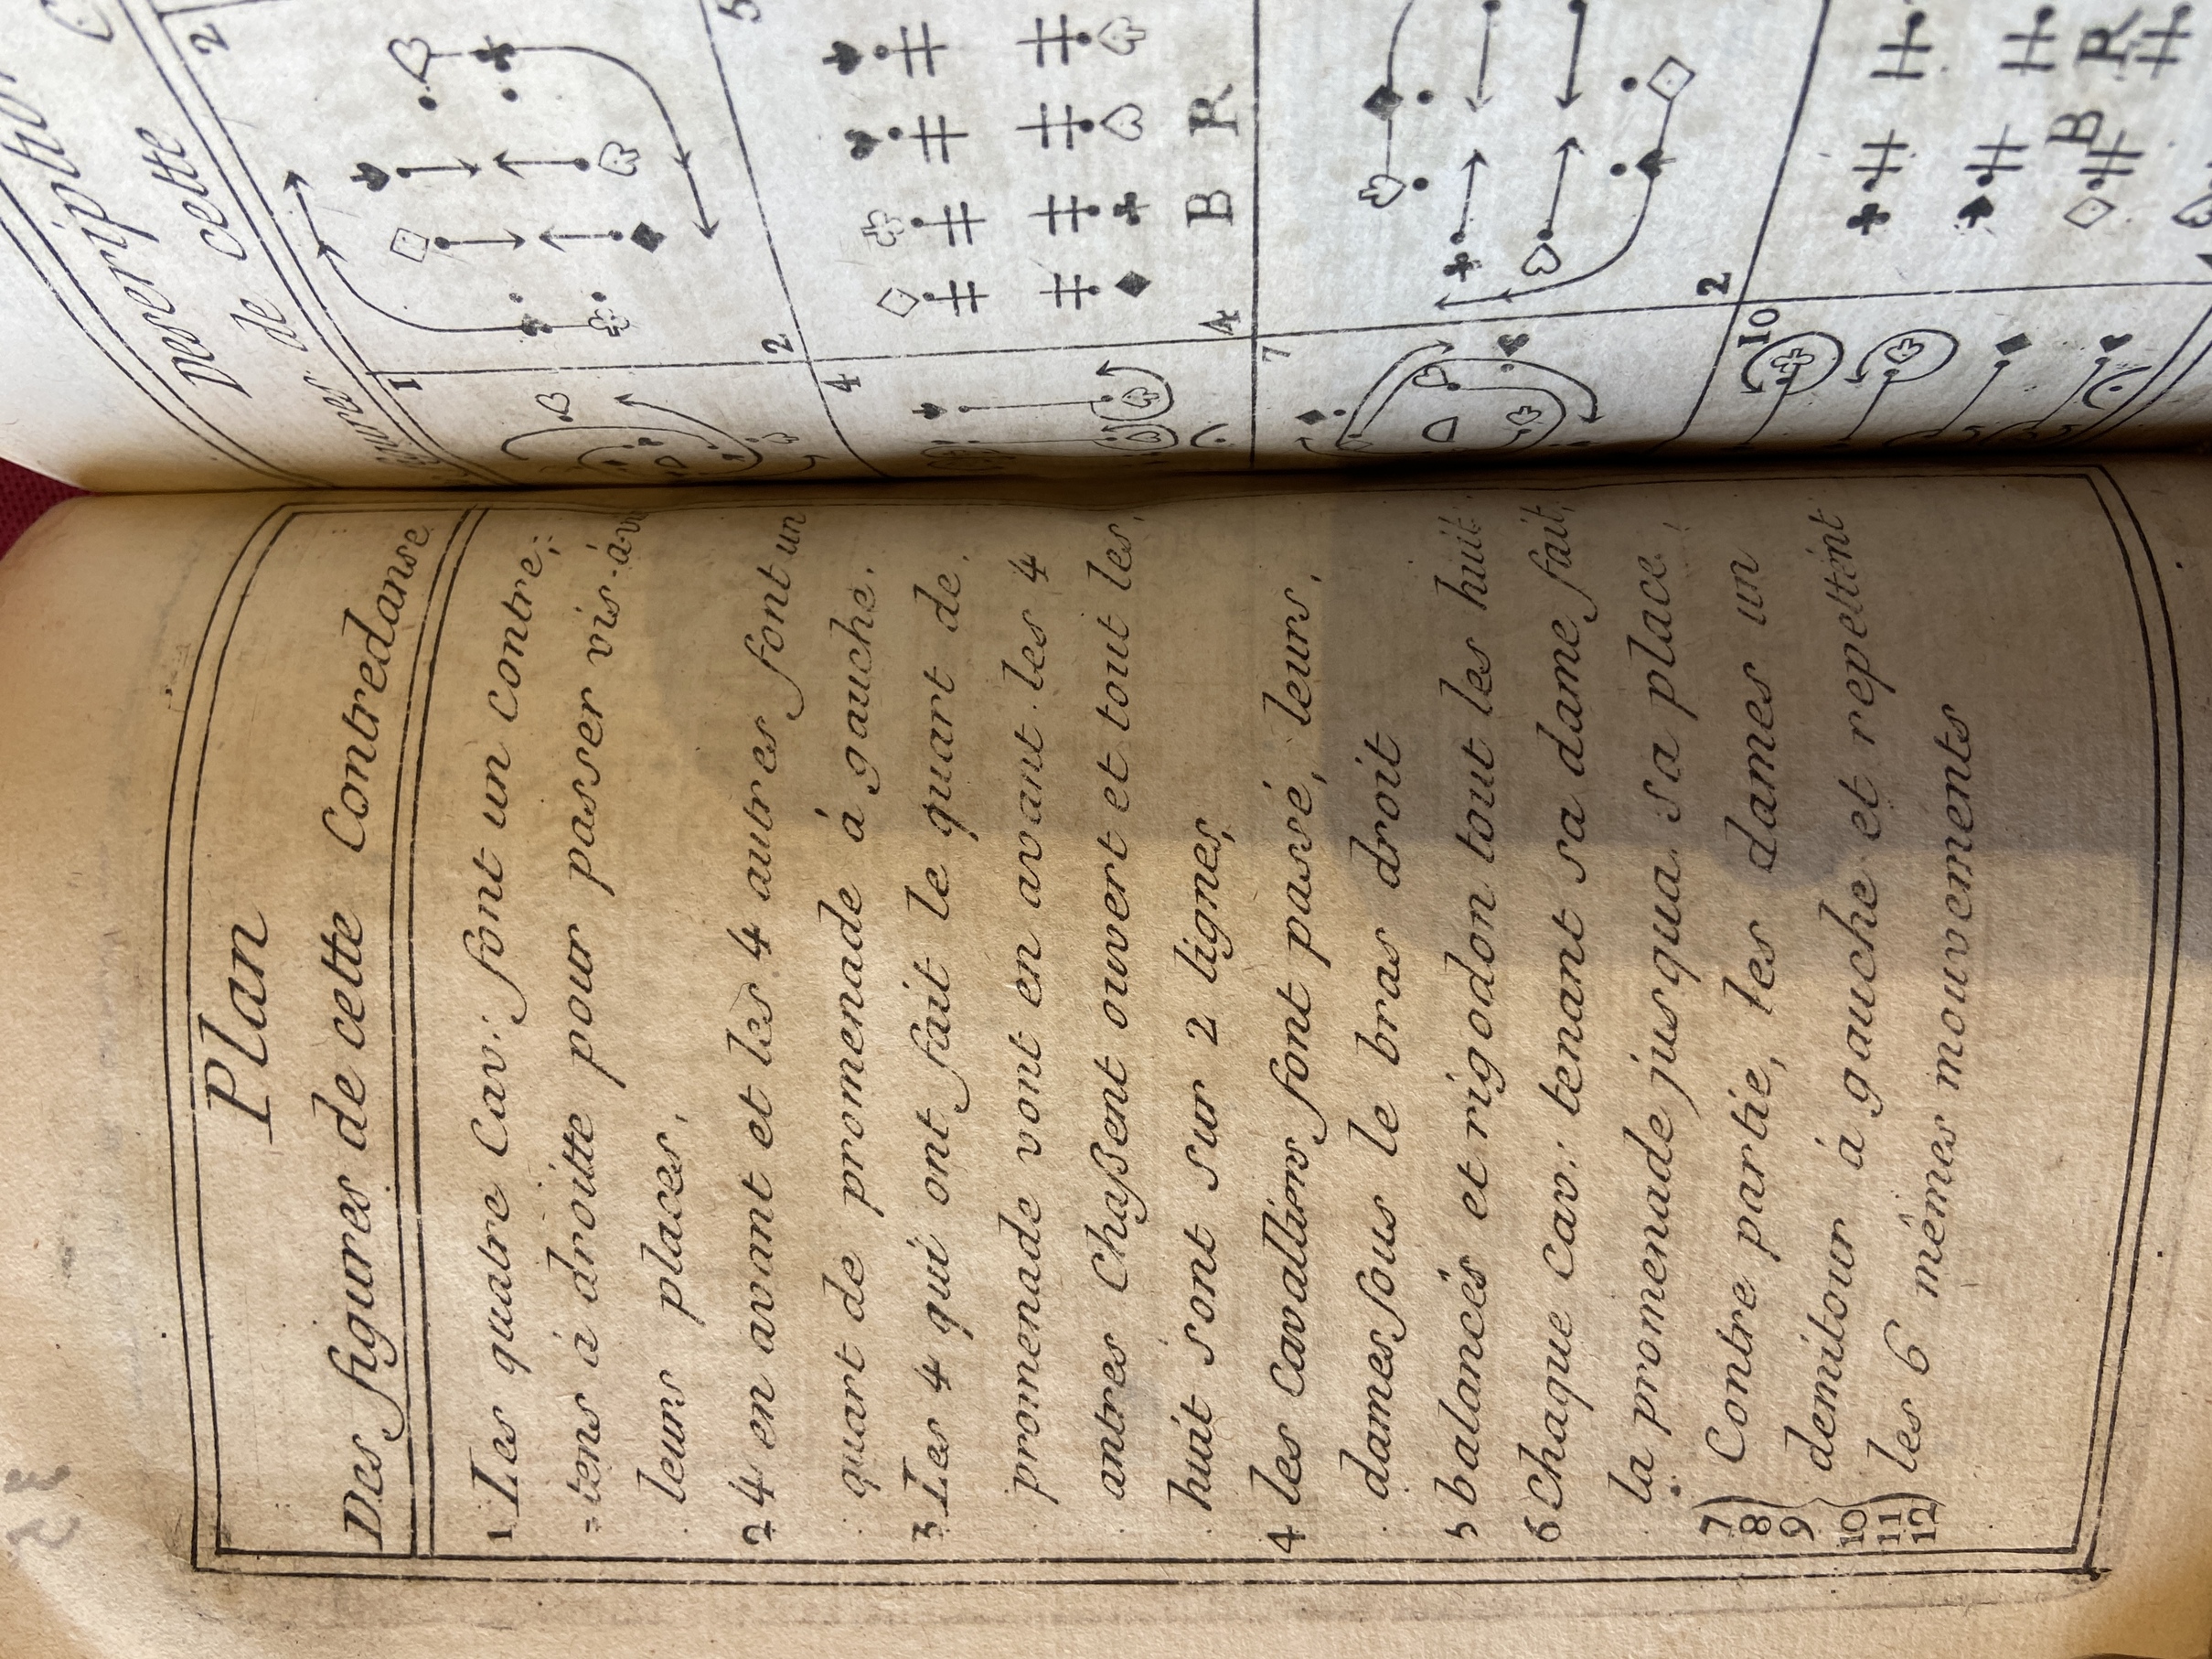 Plan
Des figures de cette Contredanse
1 Les quatre Cav: font un contre,:
=tems à droitte pour passer vis-à-
leurs places,
2 4 en avant et les 4 autres font un
quart de promenade à gauche.
3 Les 4 qui ont fait le quart de,
promenade vont en avant les 4
autres Chaßent ouvert et tout les,
huit sont sur 2 lignes,
4 les Cavalliers font passé, leurs,
dames sous le bras droit
5 balancés et rigodon tout les huit
6 Chaque Cav: tenant sa dame, fait,
la promenade jusqua sa place
7) Contre partie, les dames un
8)
9) demitour à gauche et repettent
10)
11) les 6 mêmes mouvements
12)
Description
de cette
figures de
1
2
2
4
5
4
B R
7
2
10
B R